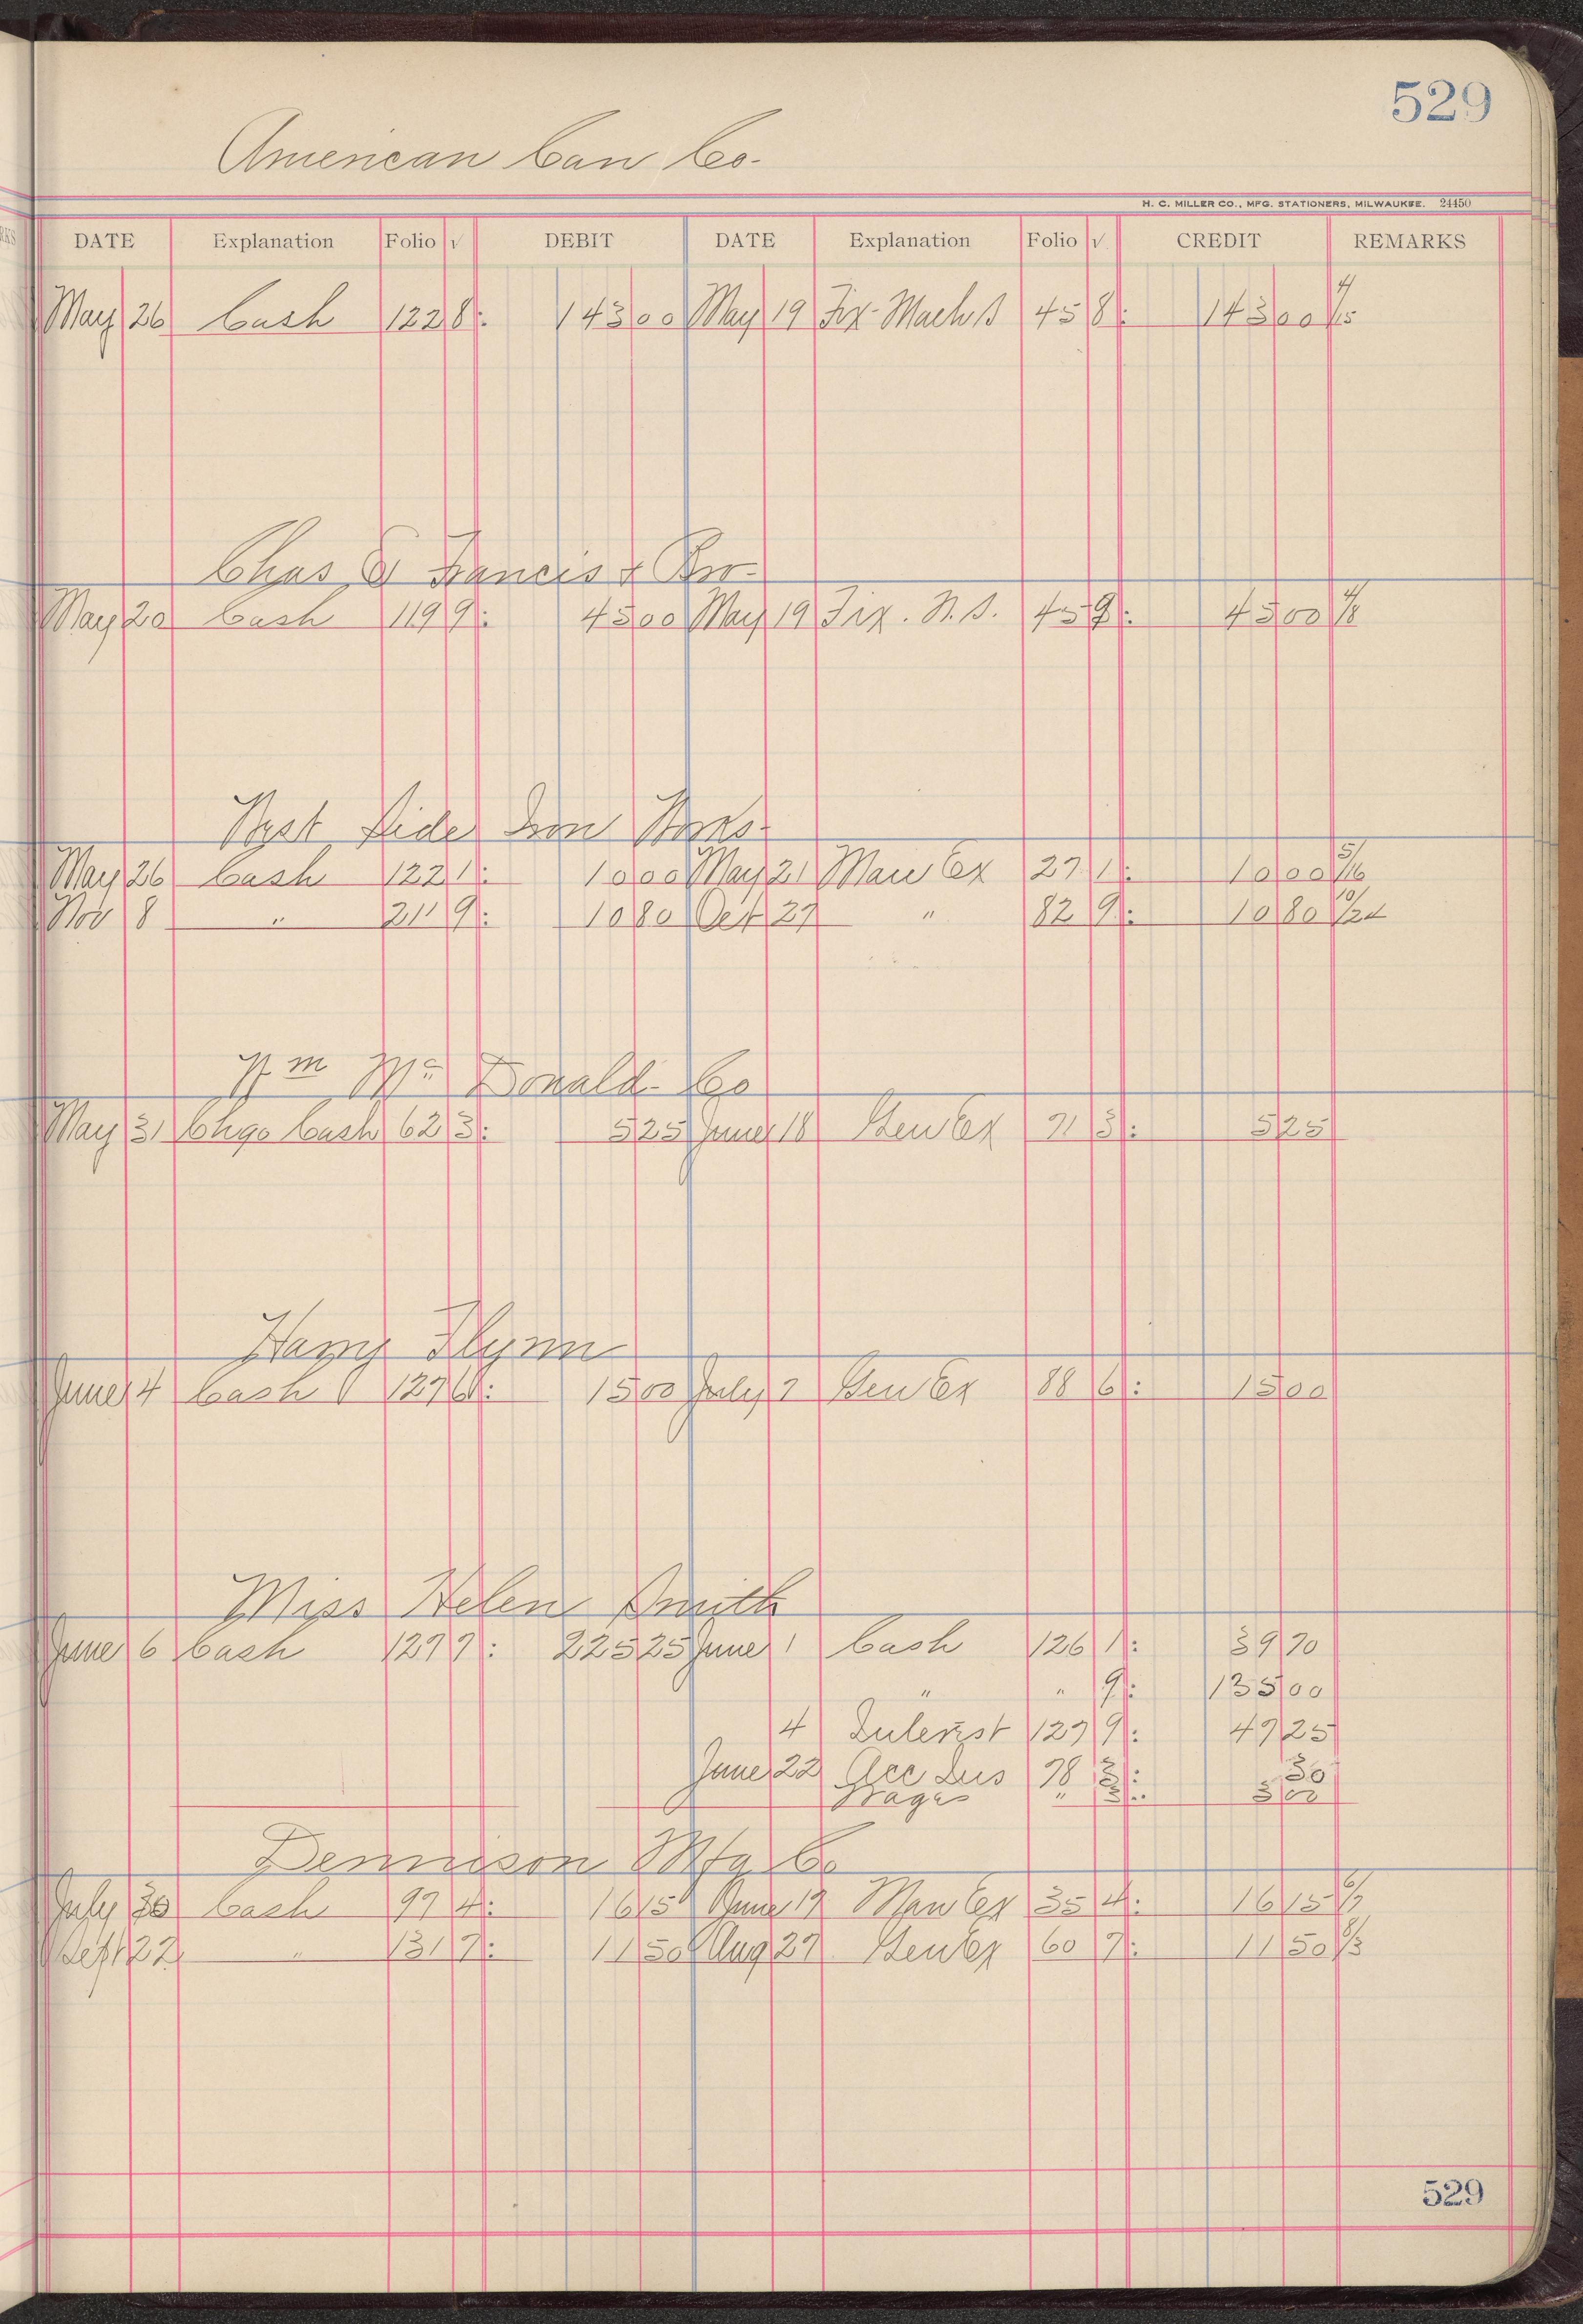 529
American Can Co.
H. C. MILLER CO., MFG. STATIONERS, MILWAUKEE. 24450
DATE Explanation Folio √ DEBIT DATE Explanation Folio √ CREDIT REMARKS
May 26 Cash 122 8: 143 00 May 19 Fix. Mach S 45 8: 143 00 4/15
Chas E Francis & Bro.
May 20 Cash 119 9: 45 00 May 19 Fix. N.S. 45 9: 45 00 4/8
West Side Iron Works.
May 26 Cash 122 1: 10 00 May 21 Man Ex 27 1: 10 00 5/16
Nov 8 " 211 9: 10 80 Oct 27 " 82 9: 10 80 10/24
Wm Mc Donald Co
May 31 Chgo Cash 62 3: 5 25 June 18 Gen Ex 71 3: 5 25
Harry Flynn
June 4 Cash 127 6: 15 00 July 7 Gen Ex 88 6: 15 00
Miss Helen Smith
June 6 Cash 129 7: 225 25 June 1 Cash 126 1: 39 70
" " 9: 135 00
4 Interest 127 9: 47 25
June 22 Acc Ins 78 3: 30
Wages " 3: 3 00
Dennison Mfg Co
July 30 Cash 97 4: 16 15 June 17 Man Ex 35 4: 16 15 6/7
Sept 22 " 131 7: 11 50 Aug 27 Gen Ex 60 7: 11 50 8/3
529